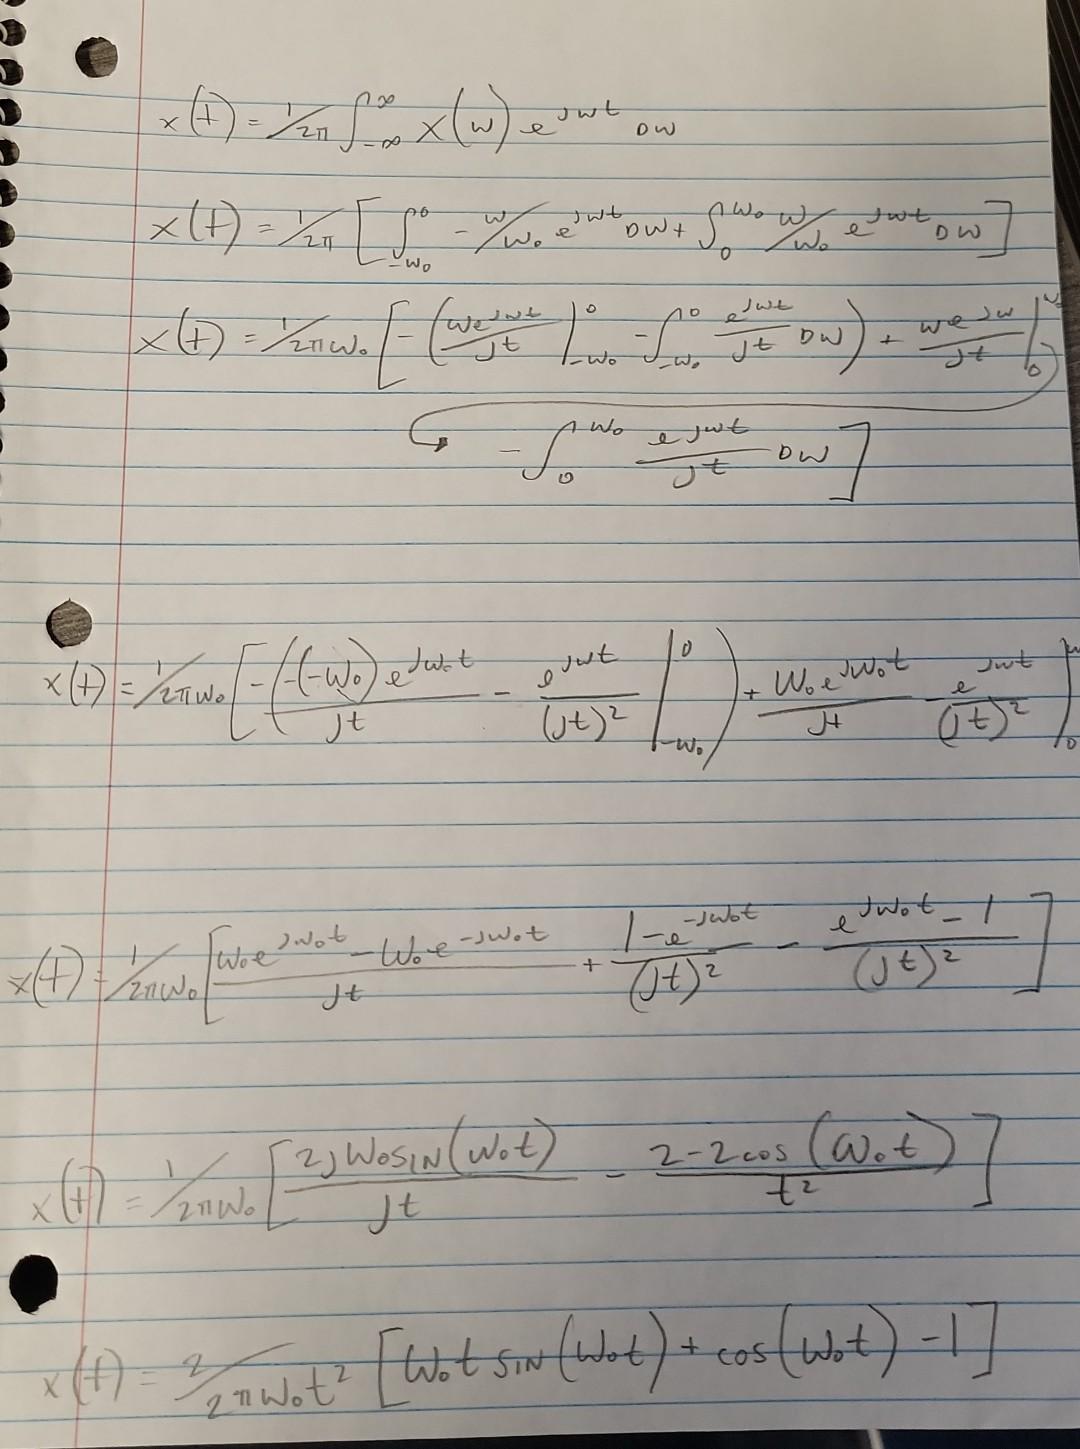 x(t) = 1/2π ∫_{-∞}^{∞} X(w) e^{jwt} Dw
x(t) = 1/2π [ ∫_{-w₀}^{0} - w/w₀ e^{jwt} Dw + ∫_{0}^{w₀} w/w₀ e^{jwt} Dw ]
x(t) = 1/2πw₀ [ - ( we^{jwt}/jt |_{-w₀}^{0} - ∫_{-w₀}^{0} e^{jwt}/jt Dw ) + we^{jw}/jt |_{0}
- ∫_{0}^{w₀} e^{jwt}/jt Dw ]
x(t) = 1/2πw₀ [ - ( -(-w₀) e^{jw₀t}/jt - e^{jwt}/(jt)² |_{-w₀}^{0} ) + w₀e^{jw₀t}/jt - e^{jwt}/(jt)² |_{0}
x(t) = 1/2πw₀ [ (w₀e^{jw₀t} - w₀e^{-jw₀t})/jt + (1-e^{-jw₀t})/(jt)² - (e^{jw₀t} - 1)/(jt)² ]
x(t) = 1/2πw₀ [ 2jw₀sin(w₀t)/jt - (2-2cos(w₀t))/t² ]
x(t) = 2/2πw₀t² [ w₀t sin(w₀t) + cos(w₀t) - 1 ]